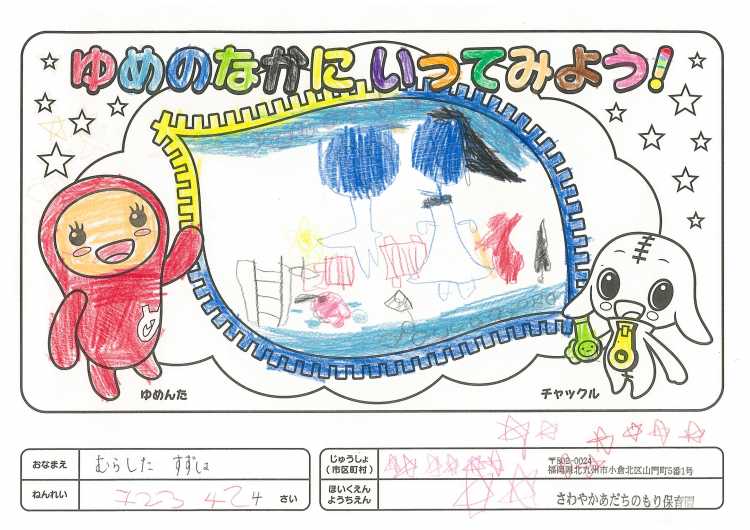 ゆめのなかにいってみよう!
ゆめんた
チャックル
おなまえ
むらした すずは
ねんれい
4 さい
じゅうしょ
(市区町村)
〒802-0024
福岡県北九州市小倉北区山門町5番1号
ほいくえん
ようちえん
さわやかあだちのもり保育園